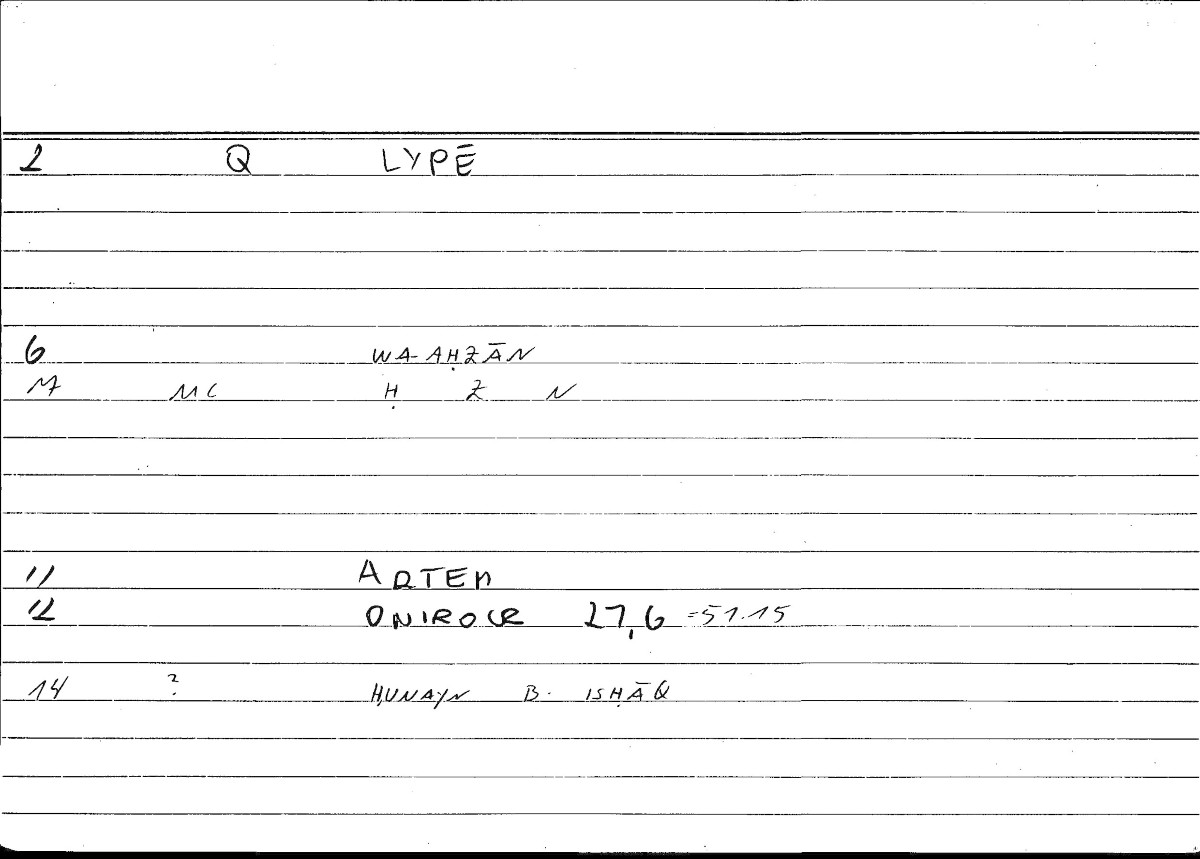 2 Q LYPĒ
6 WA-AḤZĀN
M MC Ḥ Z N
11 ARTEM
12 ONIROCR 27,6 =51.15
14 ? ḤUNAYN B. ISḤĀQ